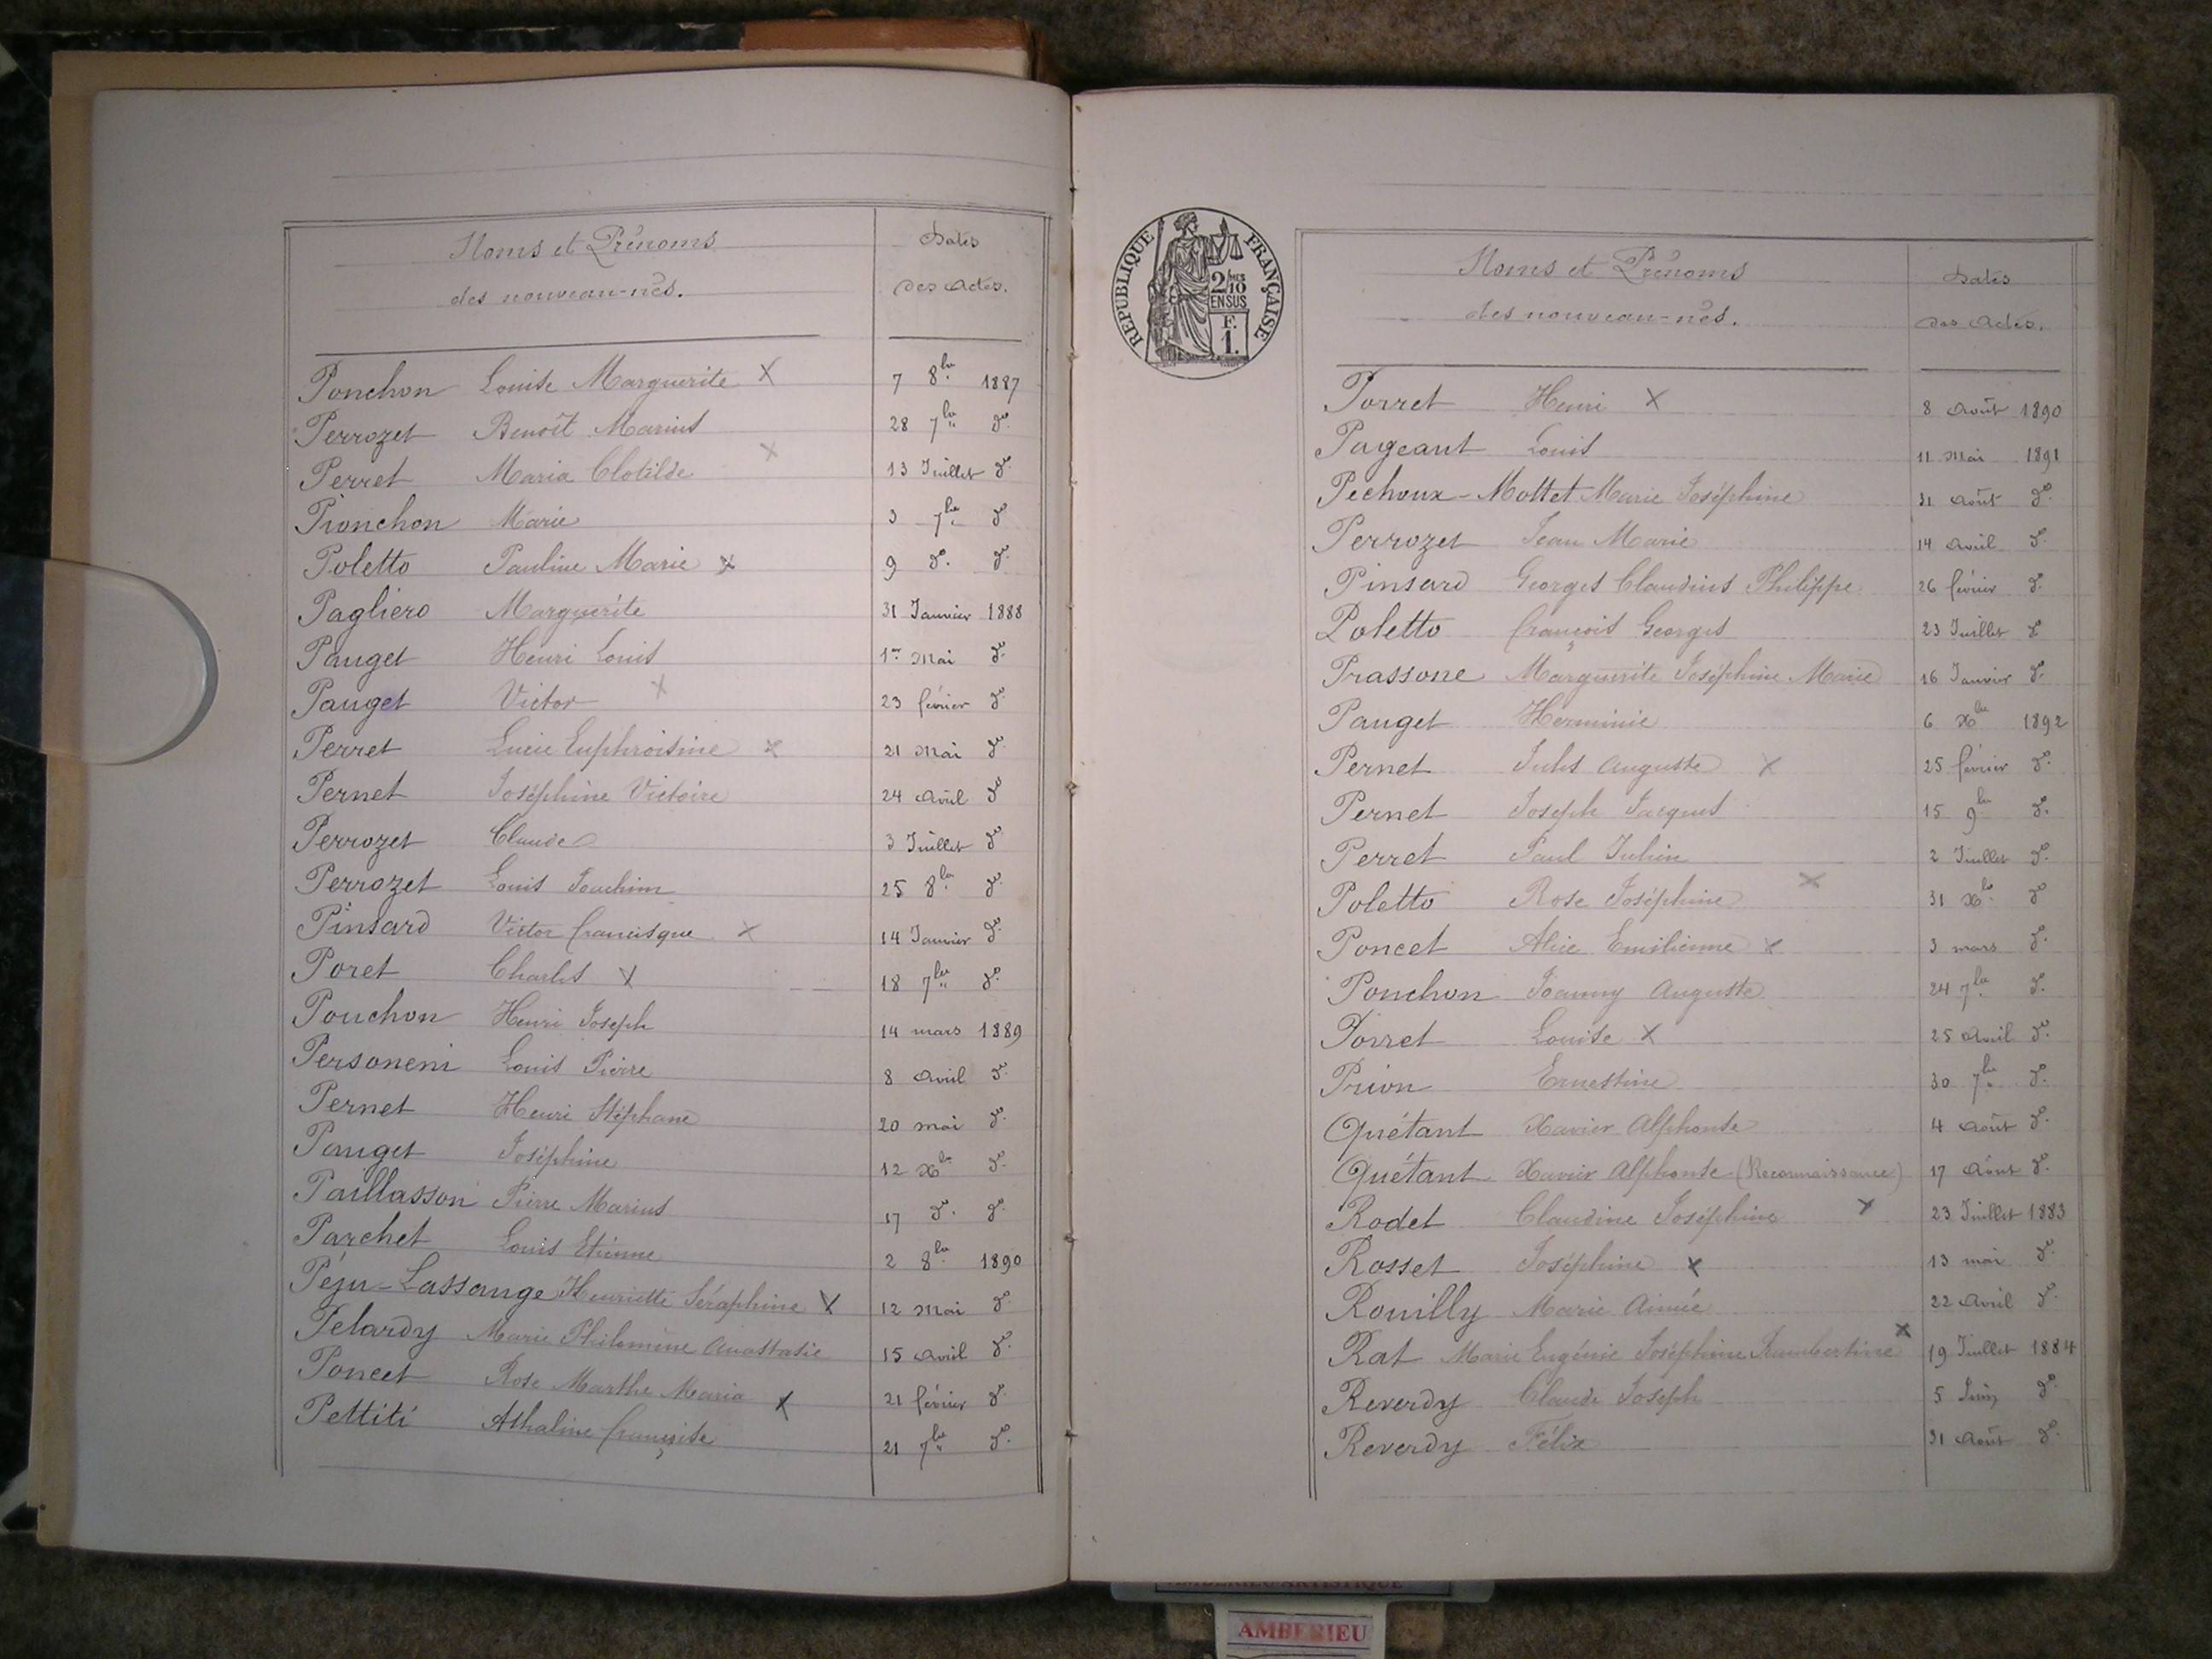 Noms et Prénoms
des nouveau-nés.
Dates
des actes.
Ponchon Louise Marguerite X 7 8bre 1887
Perrozet Benoît Marius 28 7bre do
Perret Maria Clotilde X 13 Juillet do
Pionchon Marie 3 7bre do
Poletto Pauline Marie X 9 do do
Pagliero Marguerite 31 Janvier 1888
Pauget Henri Louis 1er Mai do
Pauget Victor X 23 février do
Perret Lucie Euphroisine X 21 Mai do
Pernet Joséphine Victoire 24 Avril do
Perrozet Claude 3 Juillet do
Perrozet Louis Joachim 25 8bre do
Pinsard Victor francisque X 14 Janvier do
Poret Charles X 18 7bre do
Pouchon Henri Joseph 14 mars 1889
Personeni Louis Pierre 8 Avril do
Pernet Henri Stéphane 20 mai do
Pauget Joséphine 12 Xbre do
Paillasson Pierre Marius 17 do do
Parchet Louis Etienne 2 8bre 1890
Péju-Lassange Henriette Séraphine X 12 Mai do
Pelardy Marie Philomène Anastasie 15 Avril do
Poncet Rose Marthe Maria X 21 février do
Pettiti Athaline françoise 21 7bre do
RÉPUBLIQUE FRANÇAISE
2/10 MES
EN SUS
F.
1.
Noms et Prénoms
des nouveau-nés.
Dates
des Actes.
Porret Henri X 8 Août 1890
Pageant Louis 11 Mai 1891
Pechoux-Mottet Marie Joséphine 31 Août do
Perrozet Jean Marie 14 Avril do
Pinsard Georges Claudius Philippe 26 février do
Poletto françois Georges 23 Juillet do
Prassone Marguerite Joséphine Marie 16 Janvier do
Pauget Herminie 6 Xbre 1892
Pernet Jules Auguste X 25 février do
Pernet Joseph Jacques 15 9bre do
Perret Paul Julien 2 Juillet do
Poletto Rose Joséphine X 31 Xbre do
Poncet Alice Emilienne X 3 mars do
Ponchon Joanny Auguste 24 7bre do
Porret Louise X 25 Avril do
Prion Ernestine 30 7bre do
Quétant Xavier Alphonse 4 Août do
Quétant Xavier Alphonse (Reconnaissance) 17 Août do
Rodet Claudine Joséphine X 23 Juillet 1883
Rosset Joséphine X 13 mai do
Rouilly Marie Aimée 22 Avril do
Rat Marie Eugénie Joséphine Rambertine X 19 Juillet 1884
Reverdy Claude Joseph 5 Juin do
Reverdy Félix 31 Août do
AMBERIEU ARTISTIQUE
AMBERIEU